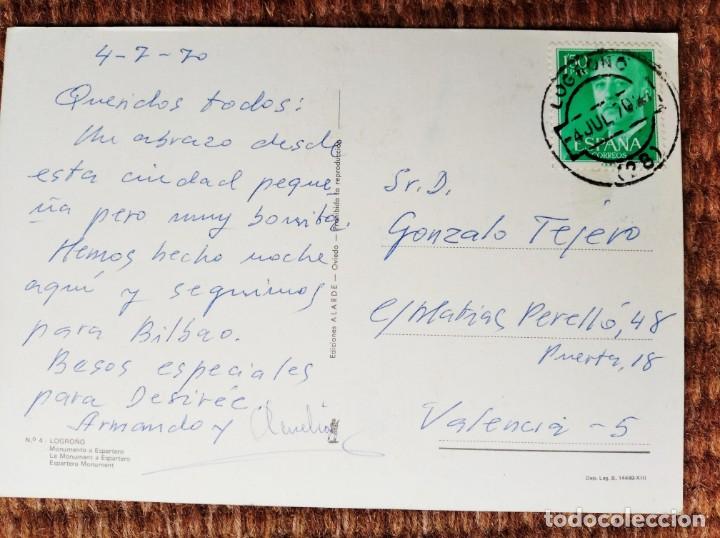 4-7-70
Queridos todos:
Un abrazo desde
esta ciudad peque,
ña pero muy bonita.
Hemos hecho noche
aquí y seguimos
para Bilbao.
Besos especiales
para Desirée.
Armando y
N.º 4 - LOGROÑO
Monumento a Espartero
Le Monument a Espartero
Espartero Monument
Ediciones ALARDE — Oviedo — Prohibida la reproducción
1'50
ESPAÑA
CORREOS
LOGROÑO
4 JUL 70
(28)
Sr. D.
Gonzalo Tejero
c/Matias Perelló, 48
Puerta, 18
Valencia - 5
Dep. Leg. B. 14492-XIII
todocoleccion
todocoleccion.net